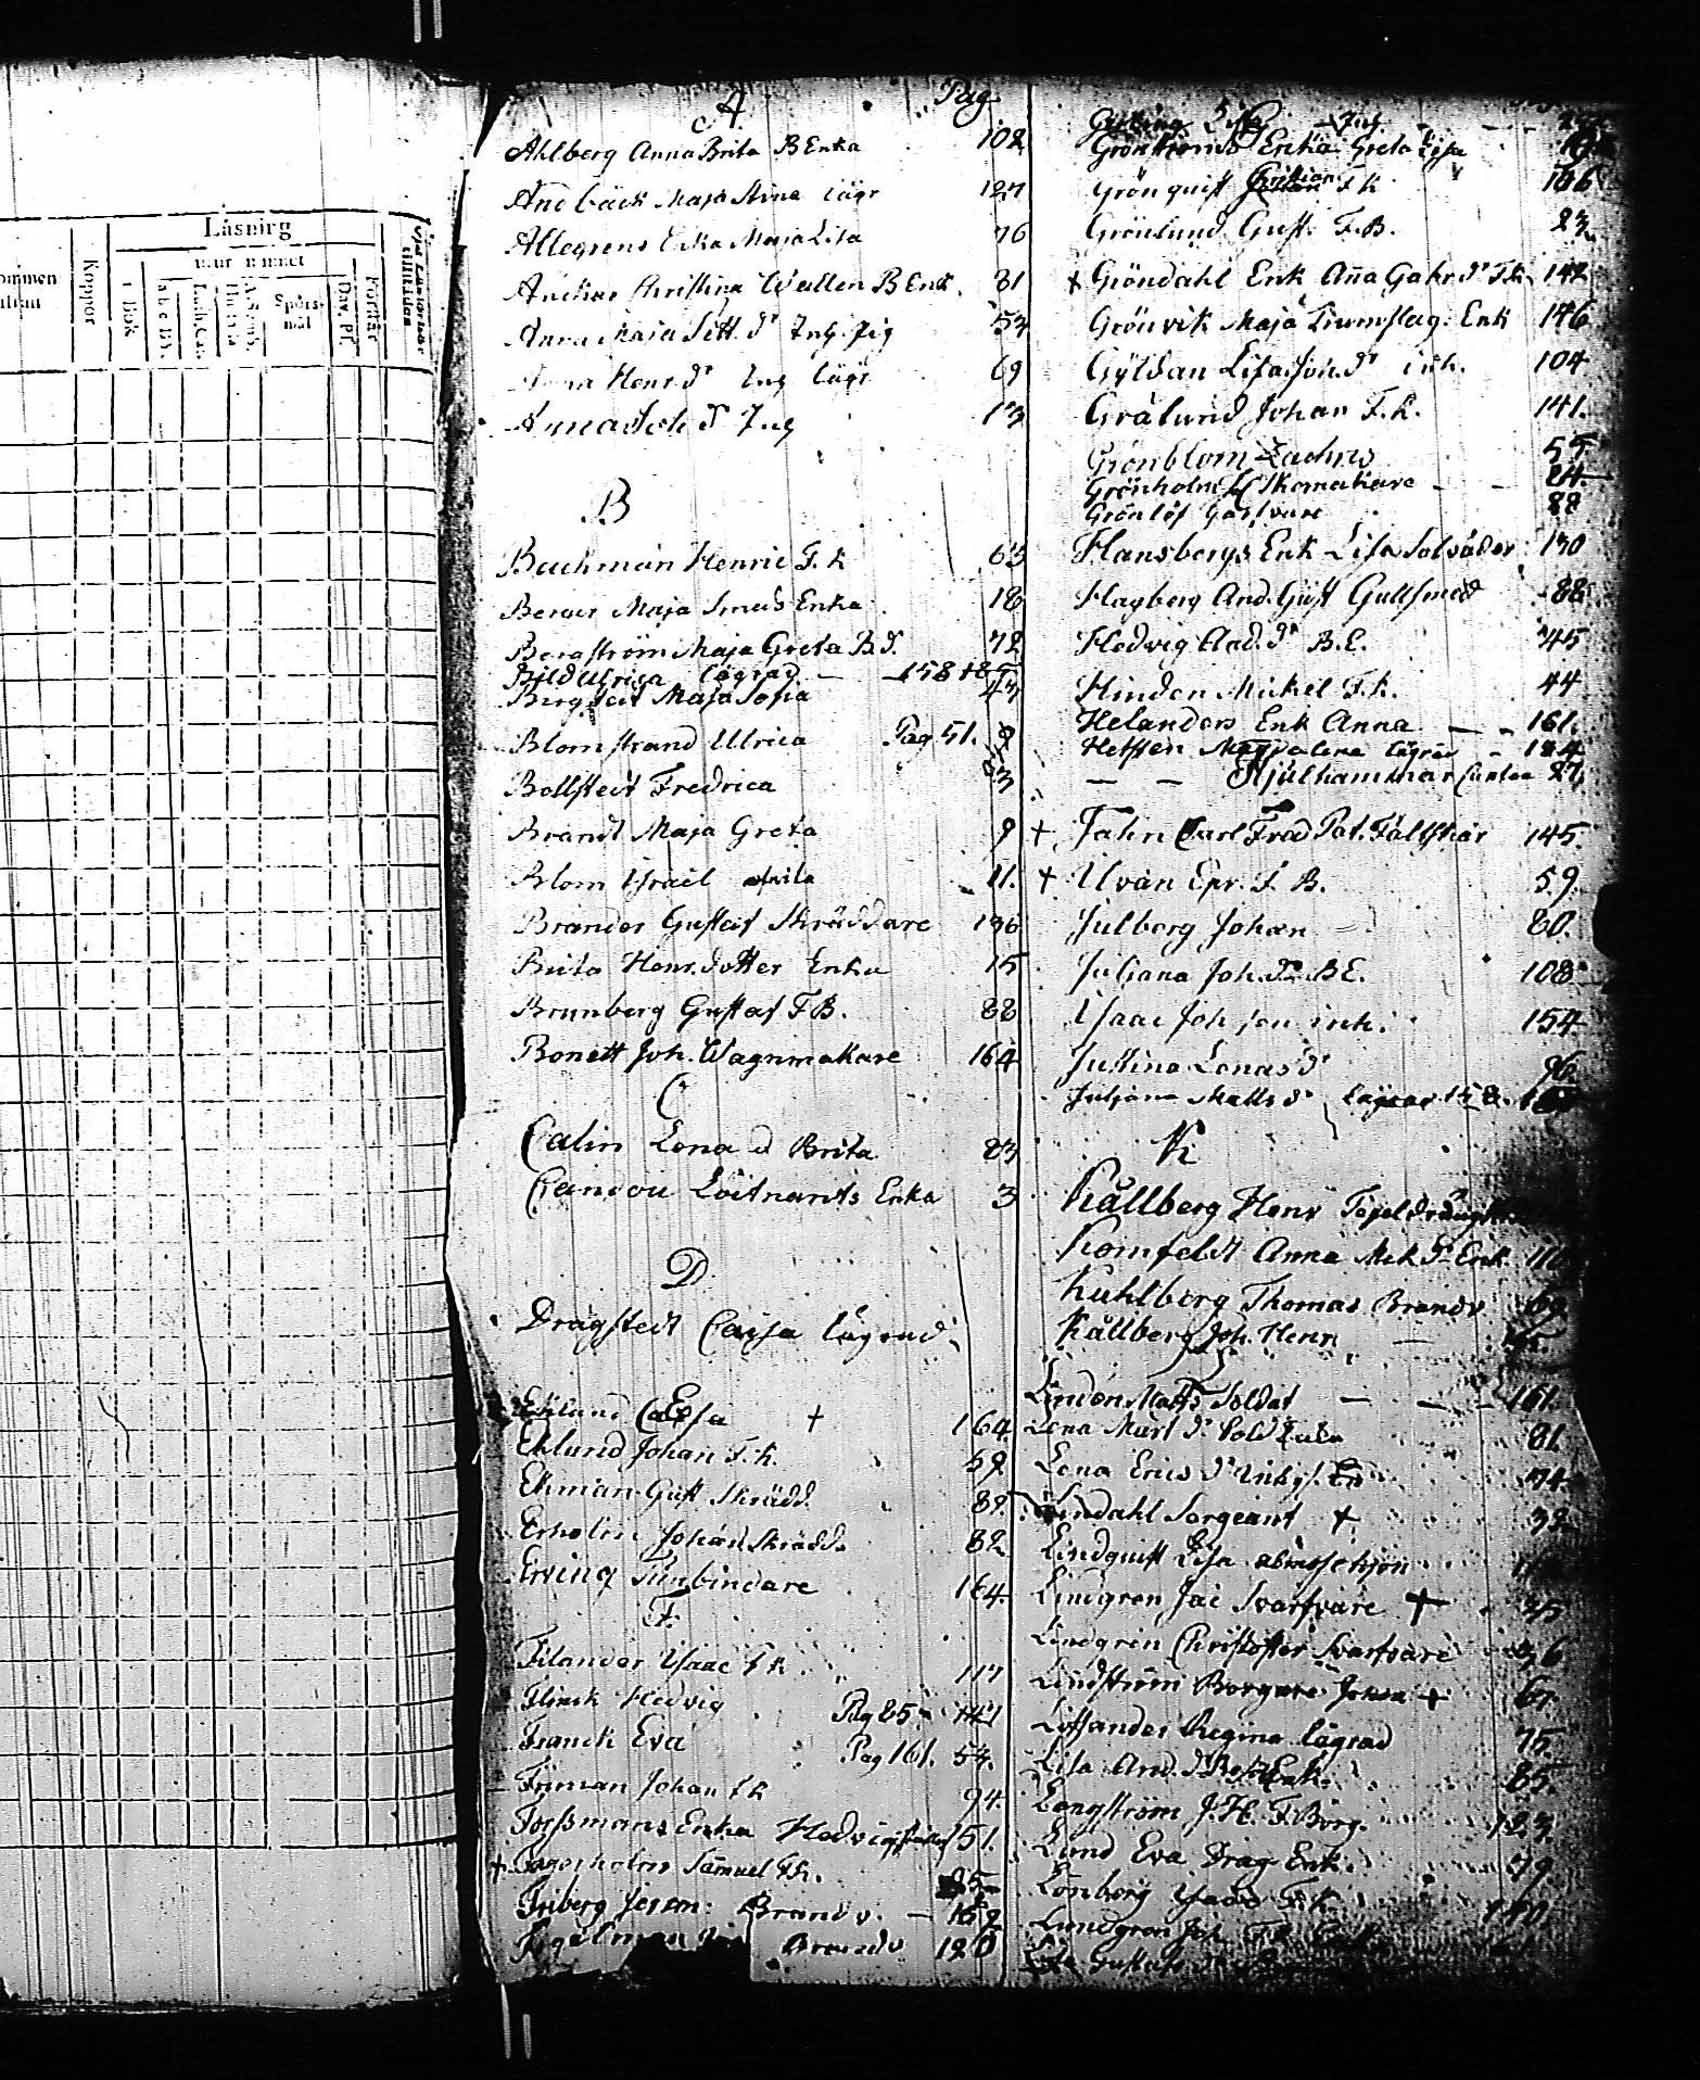 Läsnirg
Koppor
i Bok
Spörs-
mål
Dav. Ps.
Förstår
A Pag
Ahlberg Anna Brita B Enka 102
Andbäck Maja Stina lägr 127
Allegrens Enka Maja Lisa 76
Anckar Christina Wallen B Enk. 31
Anna Maja Sett. dr Inh. Pig 54
Anna Henr. dr Inh lägr 69
Anna Joh dr Inh 13
B
Bachman Henric F. k 63
Berger Maja Smeds Enka 18
Bergström Maja Greta B. d. 72
Bild Ulrica lägrad — 158
Bergstedt Maja Sofia 47
Blomstrand Ulrica Pag 51. 9
Bollstedt Fredrica 83
Brandt Maja Greta 9
Blom Israel 11.
Brander Gustaf Skräddare 136
Brita Henr. dotter Enka 15
Brunberg Gustaf F B. 88
Bonett Joh. Wagnmakare 164
C
Calin Lena d Brita 83
Löitnants Enka 3
D
Dragstedt Cajsa lägrad
Eklund Cajsa + 164
Eklund Johan F. k. 59
Ekman Gust Skrädd. 82.
Erholm Johan Skrädd. 82
Erving Tunbindare 164.
F.
Filander Isaac F k 117
Flinck Hedvig Pag 85 141
Franck Eva Pag 161. 54.
Friman Johan F k 94.
Forssmans Enka Hedvig 151.
+ Fagerholm Samuel F k. 25
Friberg Jerem: Brandv. — 162
Brandv 120
Inh
Grönstrands Enka Greta Lisa
Grönquist Christian F k 166
Grönlund Gust. F. B. 23.
+ Gröndahl Enk Anna Gabr. dr F. k. 142
Grönvik Maja Trumslag. Enk 146
Gyldan Lisa Joh. dr inh. 104
Grålund Johan F. k. 141.
Grönblom Zachris 55
Grönholm Skomakare — — 24
Grönlöf Garfvare 88
Hansbergs Enk Lisa Salvador 130
Hagberg And. Gust Gullsmed 88
Hedvig And. dr B. E. 45
Hinden Mickel F. k. 44
Helanders Enk Anna — — 161.
Hefsten Magdalena lägrad — 124
— — Hjulhammar 27
+ Jahn Carl Fred Pat. Fältskär 145.
+ Ulvan Epr. F. B. 59.
Julberg Johan 80.
Juliana Joh. dr B E. 108
Isaac Joh son inh. 154
Justina Lenas dr 96.
Juliana Matts dr lägrad 158.
K
Källberg Henr Tegeldräng
Kornfeldt Anna Mick dr Enk. 110
Kuhlberg Thomas Brandv 69
Källberg Joh. Henr —
L
Linden Matts Soldat — — 161.
Lena Mårt dr Sold Enka 81.
Lena Erics dr Inhys. 74.
Lindahl Sergeant + 32
Lindquist Lisa
Lindgren Jac Svarfvare + 35
Lindgren Christoffer Svarfvare 36
Lindström Borgare Johan + 67.
Löffander Regina lägrad 75.
Lisa And. dr Enk. 85.
Longström J. H. F. Borg. 123.
Lund Eva Drag Enk. 79
Lönberg Isaac F. k. 140
Lundgren Joh
Gustafs dr